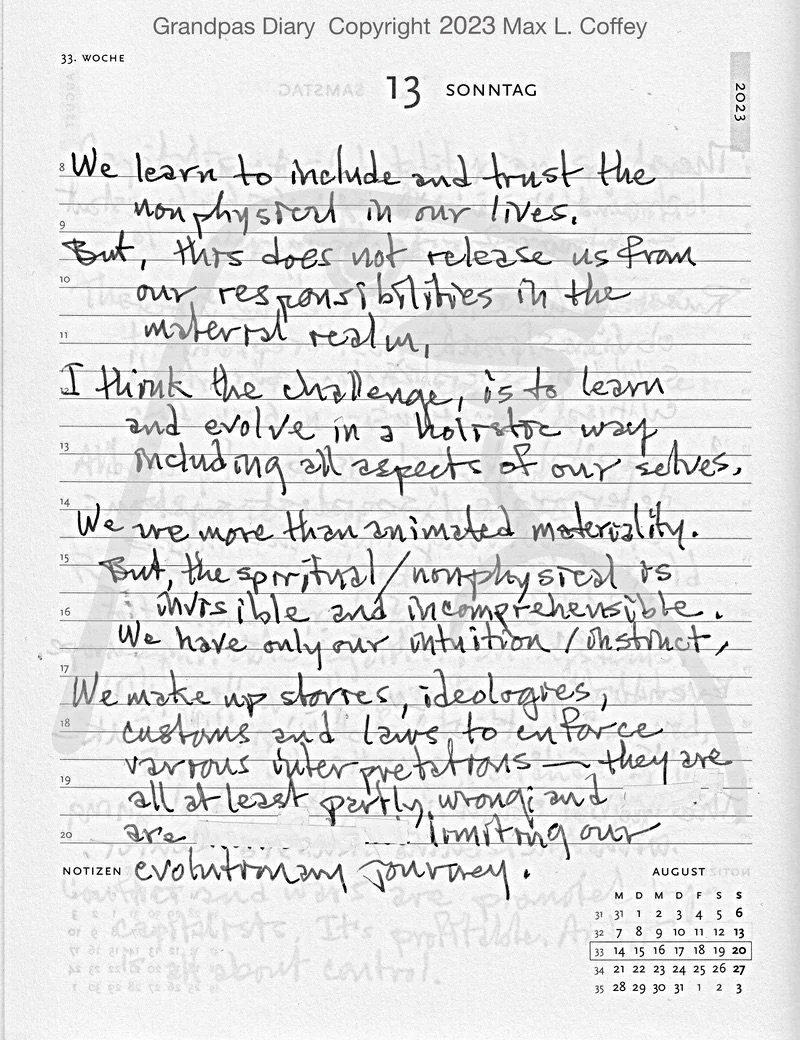 Grandpas Diary Copyright 2023 Max L. Coffey
33. WOCHE
13 SONNTAG
2023
8 We learn to include and trust the
non physical in our lives.
9
But, this does not release us from
10
our responsibilities in the
11 material realm.
12 I think the challenge, is to learn
and evolve in a holistic way
13
including all aspects of our selves.
14
We are more than animated materiality.
15
But, the spiritual / nonphysical is
16 invisible and incomprehensible.
We have only our intuition / instinct,
17
We make up stories, ideologies,
18 customs and laws to enforce
various interpretations — they are
19
all at least partly, wrong; and
20 are .............. limiting our
NOTIZEN evolutionary journey.
AUGUST
M D M D F S S
31 31 1 2 3 4 5 6
32 7 8 9 10 11 12 13
33 14 15 16 17 18 19 20
34 21 22 23 24 25 26 27
35 28 29 30 31 1 2 3